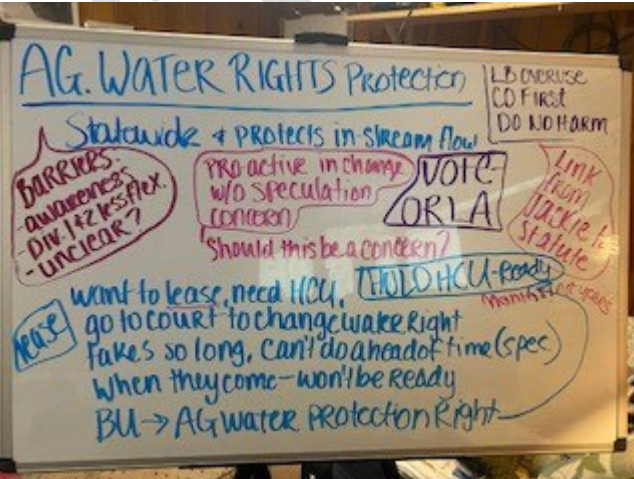 AG. WATER RIGHTS Protection
LB OVERUSE
CO FIRST
DO NO HARM
Statewide + PROTECTS in-stream flow
BARRIERS:
- awareness
- Div. 1 & 2 less flex.
- unclear?
PRO-active in change
w/o speculation
concern
Should this be a concern?
ORLA
Link
from
Jackie to
statute
want to lease, need HCU,
HOLD HCU-Ready
years
lease
go to court to change water Right
takes so long, can't do ahead of time (spec.)
When they come - won't be ready
BU → AG WATER PROTECTION Right